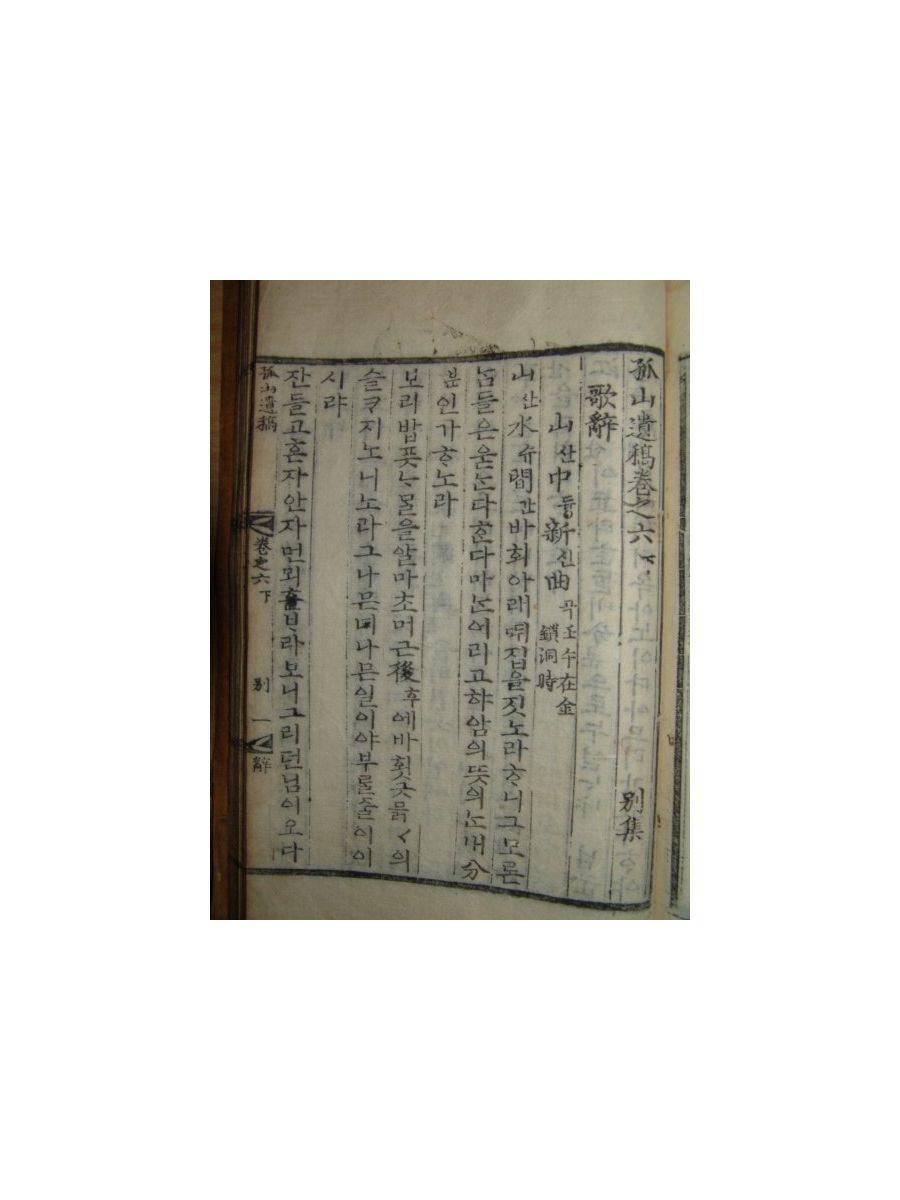 孤山遺稿卷之六下 別集
歌辭
山산中듕新신曲곡 壬午在金
鎖洞時
山산水슈間간바회아래뛰집을짓노라ᄒᆞ니그모론
ᄂᆞᆷ들은욷ᄂᆞᆫ다ᄒᆞᆫ다마ᄂᆞᆫ어리고햐암의뜻의ᄂᆞᆫ내分
분인가ᄒᆞ노라
보리밥픗ᄂᆞᄆᆞᆯ을알마초머근後후에바횟긋믉ᄀᆞ의
슬ᄏᆞ지노니노라그나믄녀나믄일이야부ᄅᆞᆯ줄이이
시랴
잔들고혼자안자먼뫼흘ᄇᆞ라보니그리던님이오다
孤山遺稿 卷之六下 別 一 辭